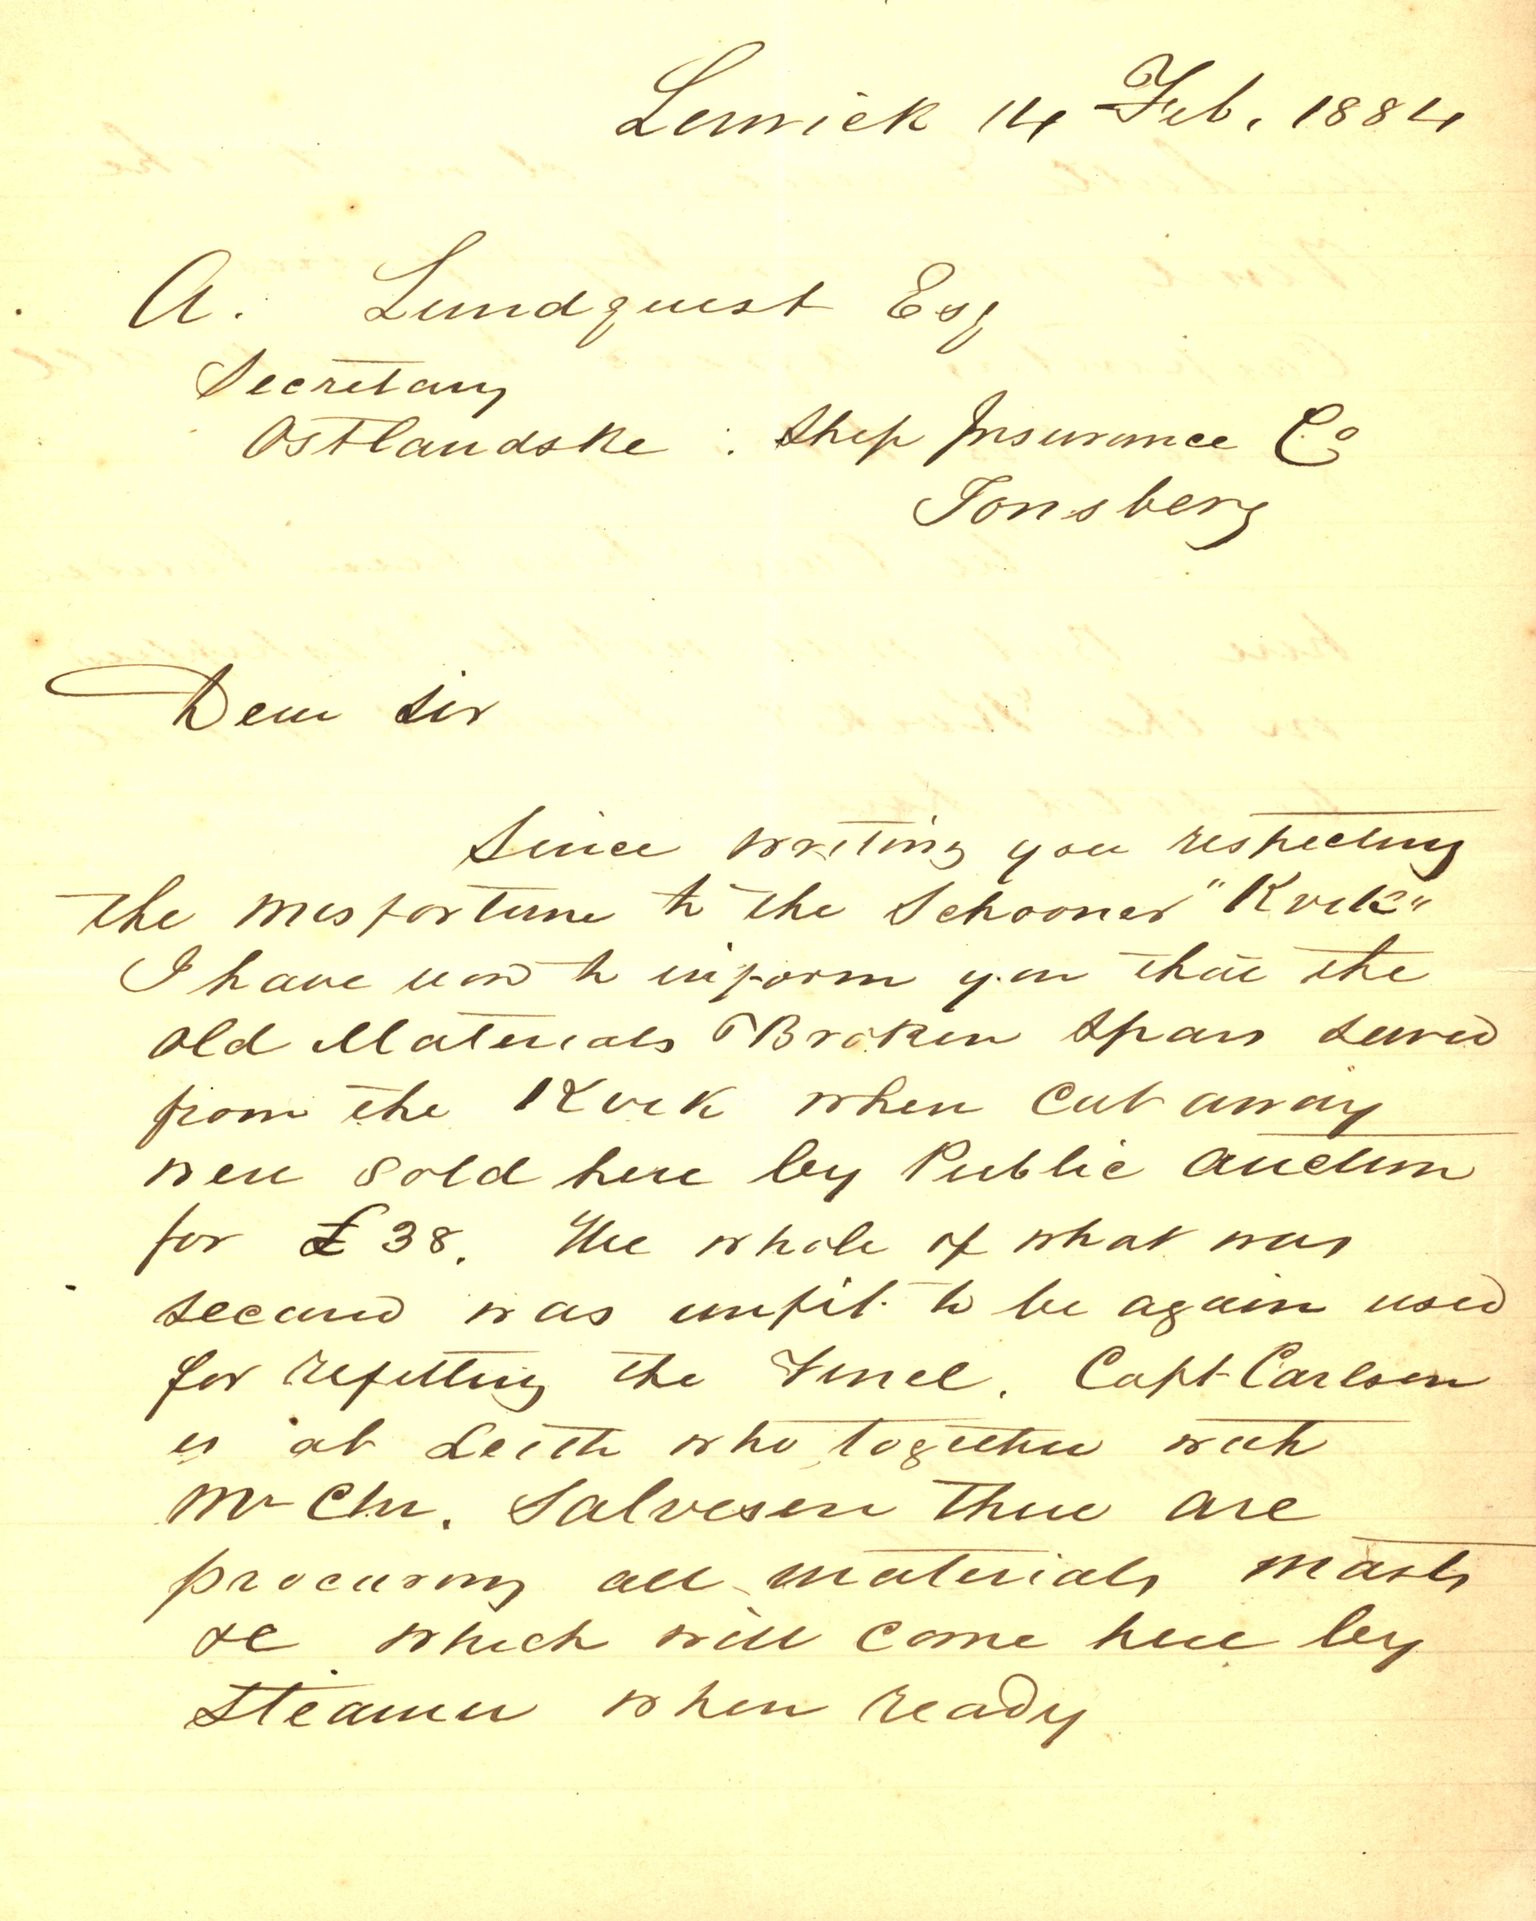 Lerwick 14 Feb. 1884
A. Lundquist Esq
Secretary
Ostlandske Ship Insurance Co
Tonsberg
Dear Sir
Since writing you respecting
the misfortune to the Schooner "Kvik"
I have now to inform you that the
old Materials & Broken Spars saved
from the Kvik when cut away
were sold here by Public Auction
for £38. The whole of what was
secured was unfit to be again used
for refitting the Vessel. Capt Carlsen
is at Leith who together with
Mr Chr. Salvesen there are
procuring all materials masts
&c which will come here by
Steamer when ready